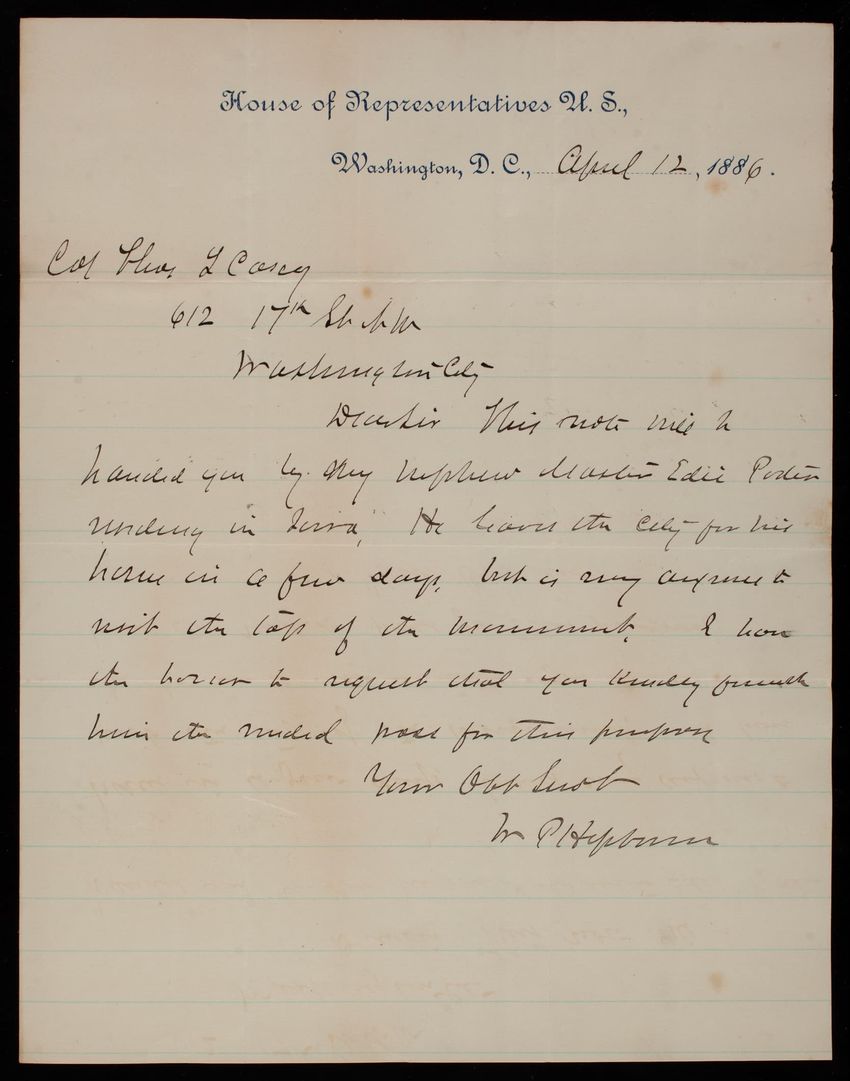 House of Representatives U. S.,
Washington, D. C., April 12, 1886.
Col Thos L Casey
612 17th St N W
Washington City
Dear Sir This note will be
handed you by my nephew Master Edie
residing in Iowa, He leaves the city for his
home in a few days, but is very anxious to
visit the top of the monument, I have
the honor to request that you kindly furnish
him the needed pass for this purpose
Your Obt Servt
W P Hepburn